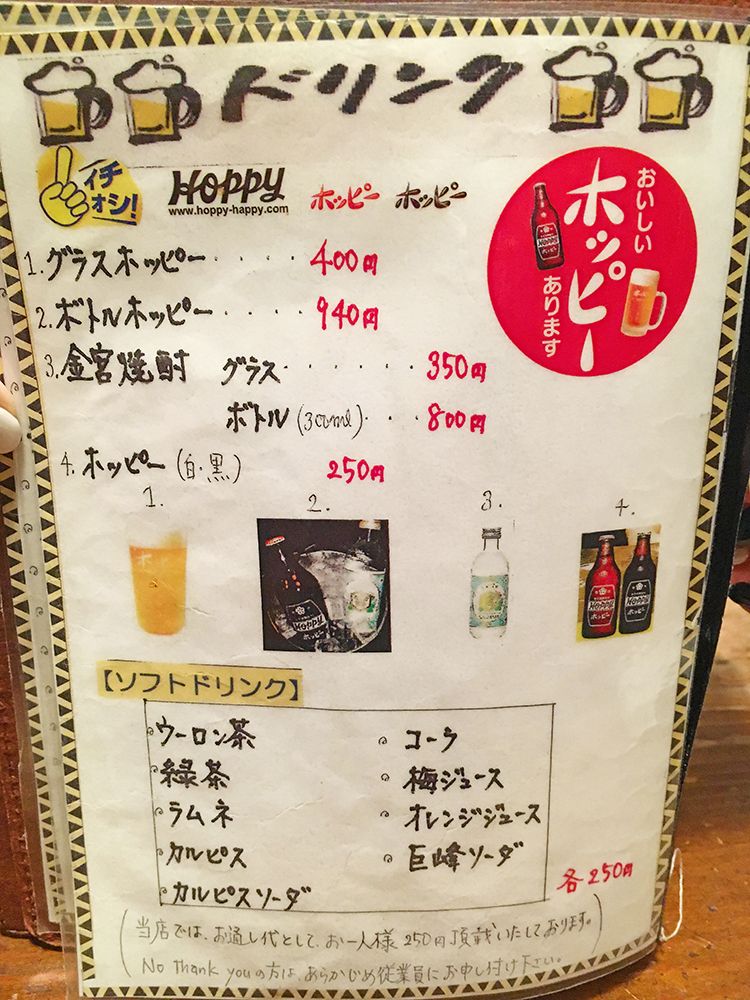 ドリンク
イチオシ!
HOPPY ホッピー ホッピー
www.hoppy-happy.com
おいしい
ホッピー
あります
1. グラスホッピー・・・・・400円
2. ボトルホッピー・・・・・940円
3. 金宮焼酎 グラス・・・・・・350円
ボトル(300ml)・・・800円
4. ホッピー(白・黒) 250円
1. 2. 3. 4.
HOPPY
ホッピー
HOPPY
ホッピー
HOPPY
ホッピー
【ソフトドリンク】
ウーロン茶 コーラ
緑茶 梅ジュース
ラムネ オレンジジュース
カルピス 巨峰ソーダ
カルピスソーダ
各250円
(当店では、お通し代として、お一人様250円頂戴いたしております。
No thank youの方は、あらかじめ従業員にお申し付け下さい。)